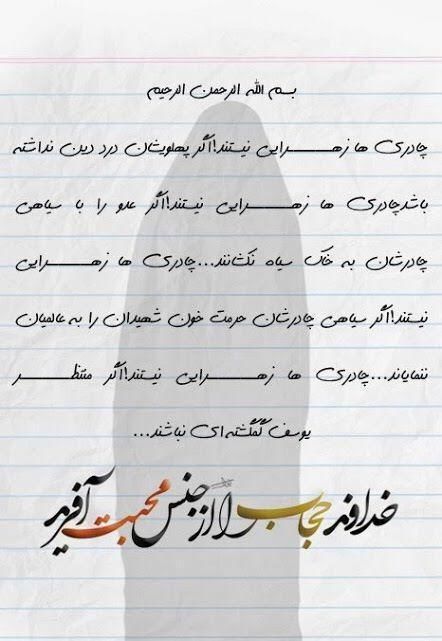 بسم الله الرحمن الرحیم
چادری ها زهـــرایی نیستند!اگر پهلویشان درد دین نداشته
باشد چادری ها زهـــرایی نیستند!اگر عدو را با سیاهی
چادرشان به خاک سیاه نکشانند...چادری ها زهـــرایی
نیستند!اگر سیاهی چادرشان حرمت خون شهیدان را به عالمیان
ننمایاند...چادری ها زهـــرایی نیستند!اگر منتظـــر
یوسف گمگشته‌ای نباشند...
خداوند حجاب را از جنس محبت آفرید